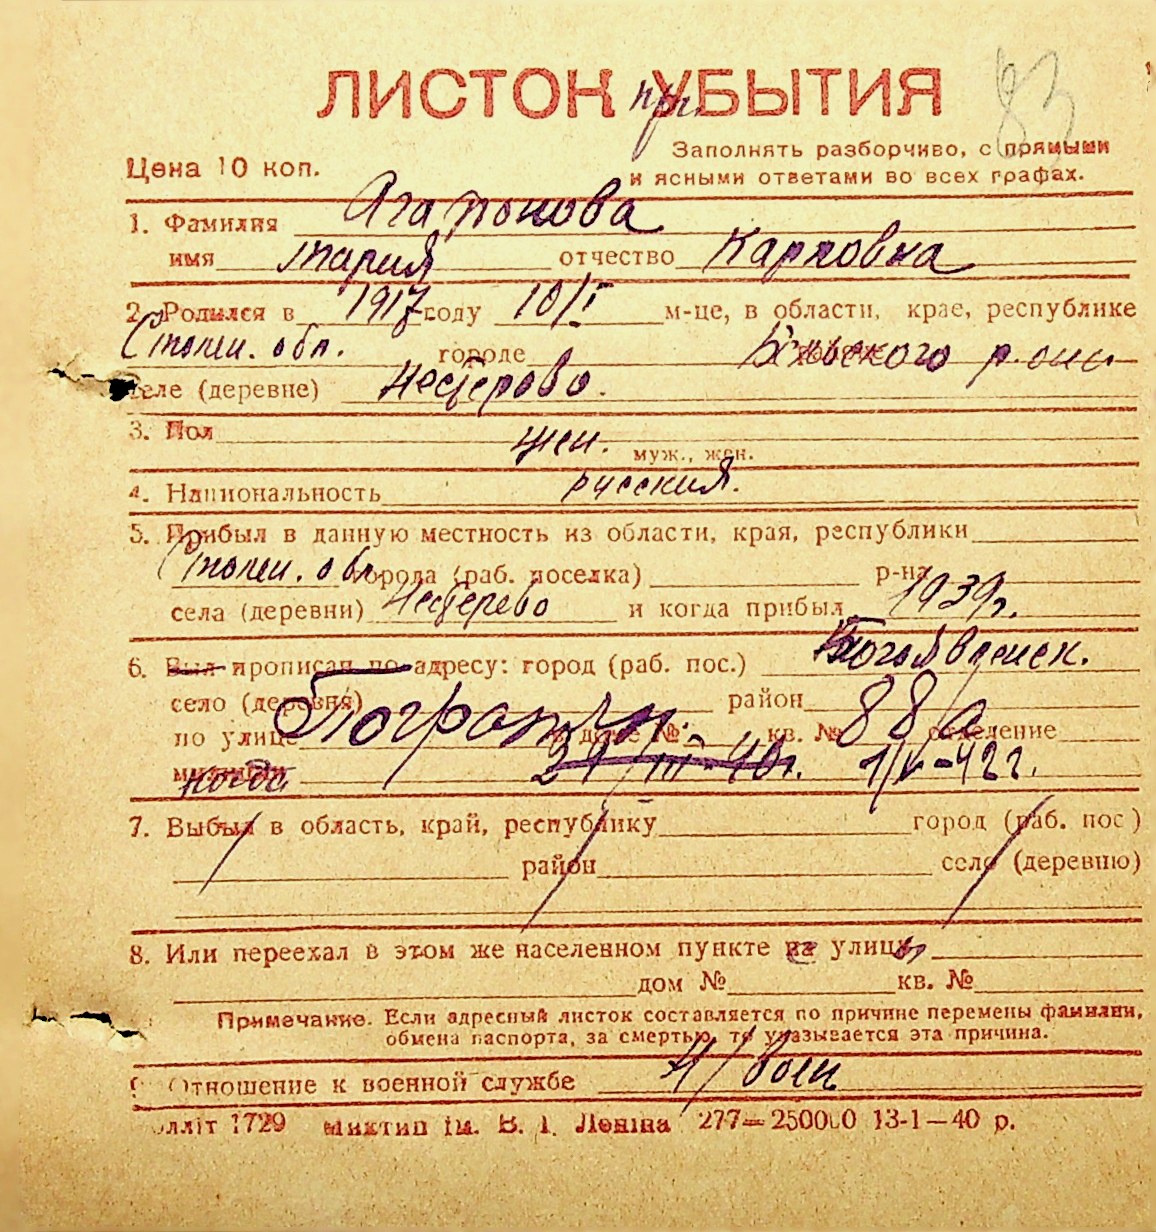 ЛИСТОК УБЫТИЯ
при 83
Цена 10 коп.
Заполнять разборчиво, с прямыми
и ясными ответами во всех графах.
1. Фамилия Агапонова
имя Мария отчество Карповна
2. Родился в 1917 году 10/I м-це, в области, крае, республике
Смолен. обл. городе района
селе (деревне) Нестерово.
3. Пол жен. муж., жен.
4. Национальность русския.
5. Прибыл в данную местность из области, края, республики
Смолен. обл. города (раб. поселка) р-на
села (деревни) Нестерево и когда прибыл 1939г.
6. Был прописан по адресу: город (раб. пос.) Богоявленск.
село (деревня) район
по улице Пограничн. в доме № кв. № 88/а отделение
милиции когда 21/III-40г. 1/V-42г.
7. Выбыл в область, край, республику город (раб. пос)
район село (деревню)
8. Или переехал в этом же населенном пункте на улицу
дом № кв. №
Примечание. Если адресный листок составляется по причине перемены фамилии,
обмена паспорта, за смертью, то указывается эта причина.
9. Отношение к военной службе н/воен
олліт 1729 Миктип ім. В. І. Леніна 277—250000 13-1—40 р.